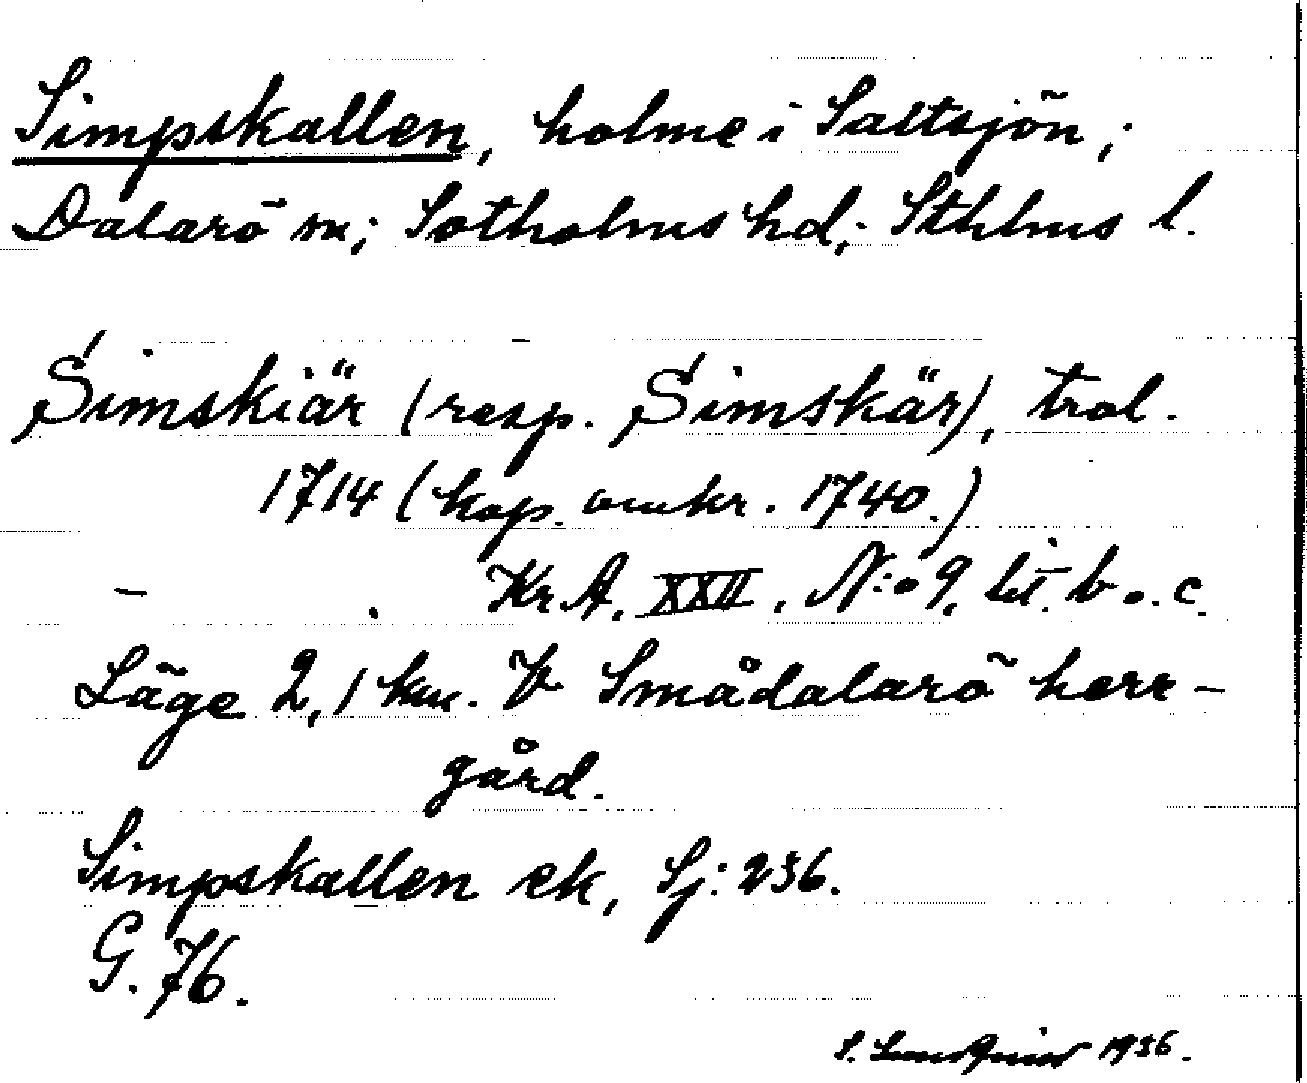 Simpskallen, holme i Saltsjön;
Dalarö sn; Sotholms hd; Sthlms l.
Simskiär (resp. Simskär), trol.
1714 (kop. omkr. 1740.)
Kr. A. XXII. N:o 9. lit. b o. c.
Läge 2,1 km. V Smådalarö herr-
gård.
Simpskallen ek, Sj: 236.
G. 76.
S. Lundqvist 1936.